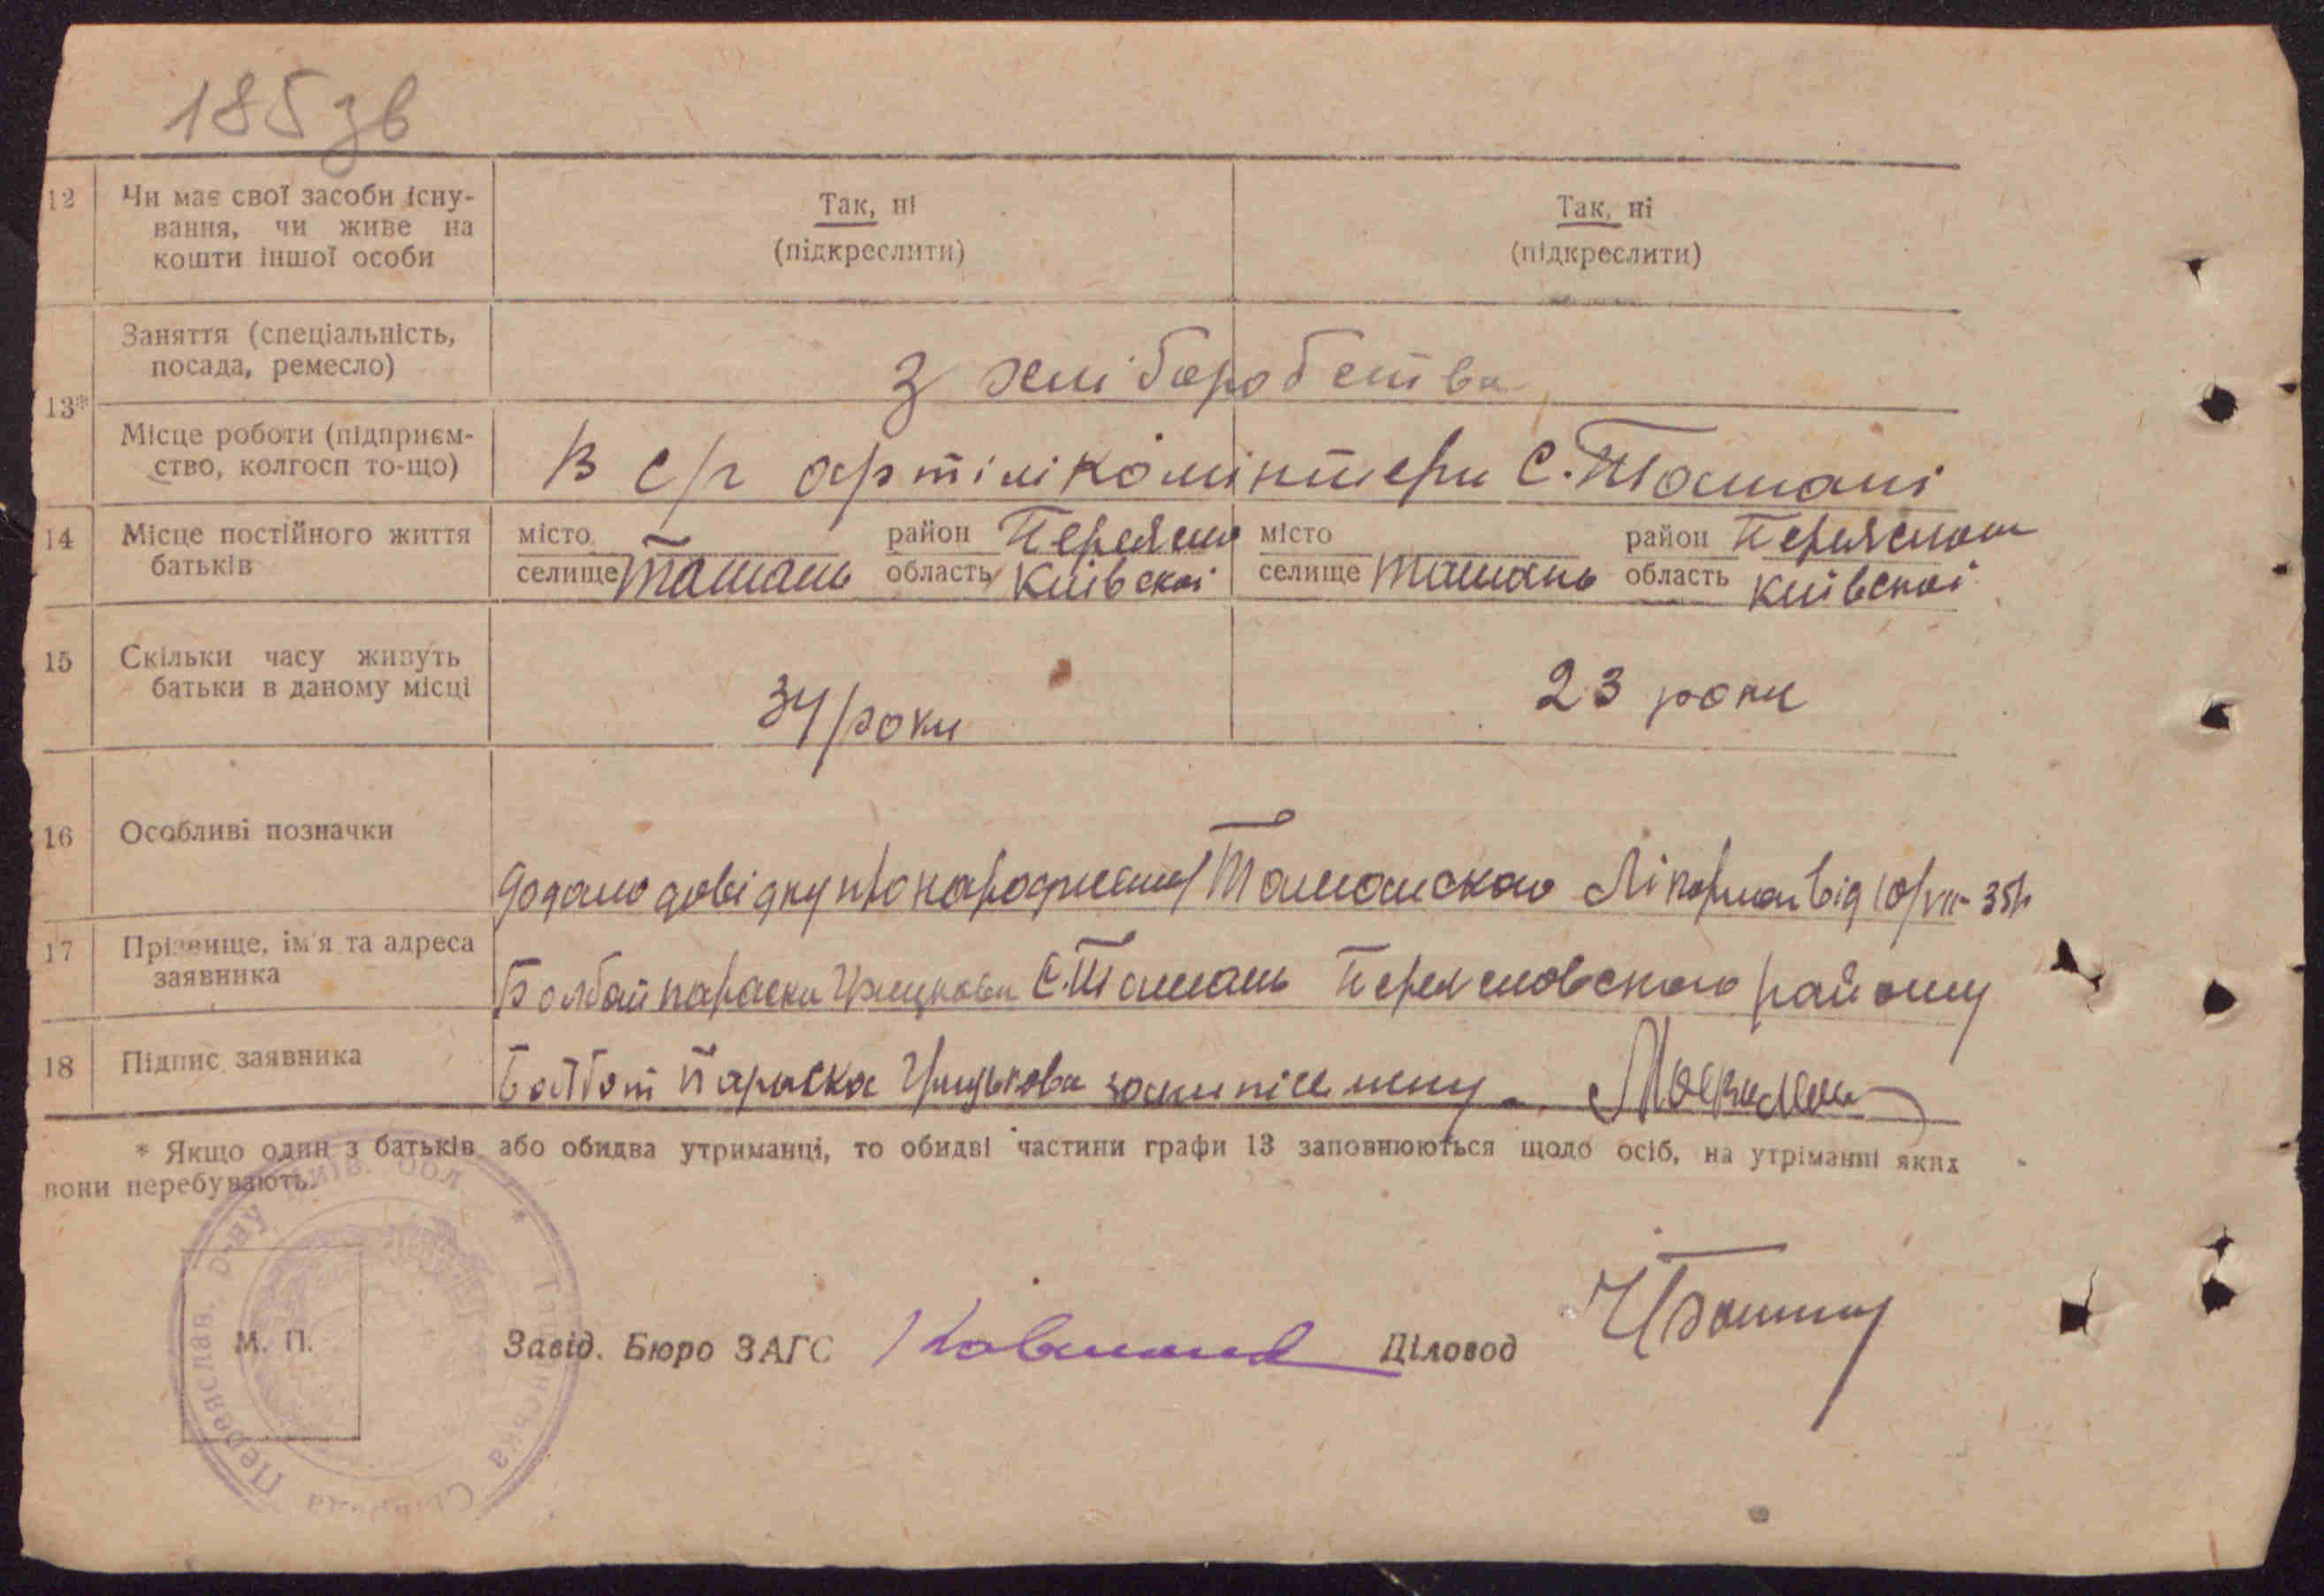 185 зв
12 Чи має свої засоби існу-
вання, чи живе на
кошти іншої особи
Так, ні
(підкреслити)
Так, ні
(підкреслити)
13*
Заняття (спеціальність,
посада, ремесло)
з хліборобства
Місце роботи (підприєм-
ство, колгосп то-що)
В с/г артілі комінтери С. Ташані
14 Місце постійного життя
батьків
місто район Переясло
селище Ташань область Київскої
місто район Переяслов
селище Ташань область Київскої
15 Скільки часу живуть
батьки в даному місці
34 роки
23 роки
16 Особливі позначки
Додано довідку про народження Ташанского від 10/VII-35р
17 Прізвище, ім'я та адреса
заявника
параски С. Ташань Переясловского району
18 Підпис заявника
Болбот Параска Грицькова
* Якщо один з батьків або обидва утриманці, то обидві частини графи 13 заповнюються щодо осіб, на утріманні яких
вони перебувають.
Переяслав. р-ну Київ. обл * Ташанська Сільрада
М. П.
Завід. Бюро ЗАГС
Діловод